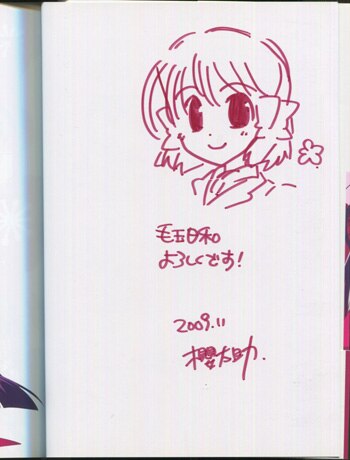 毛玉日和
よろしくです!
2009.11
櫻太助.